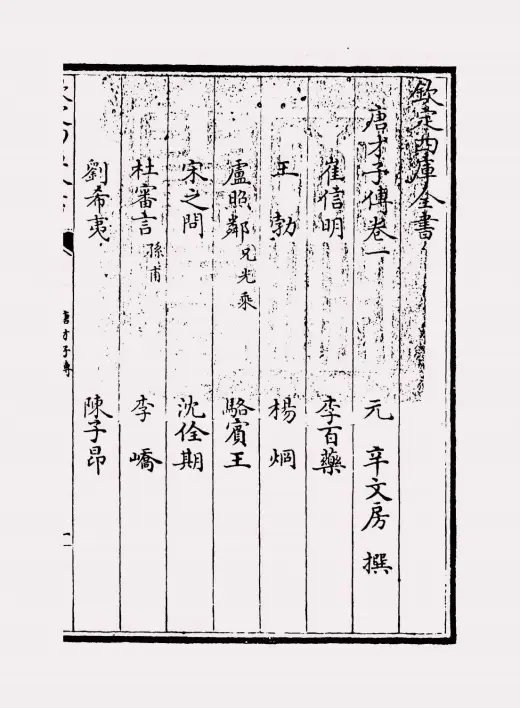 欽定四庫全書
唐才子傳卷一 元 辛文房 撰
崔信明 李百藥
王勃 楊烱
盧照鄰 兄光乘 駱賓王
宋之問 沈佺期
杜審言 孫甫 李嶠
劉希夷 陳子昂
唐才子傳
一